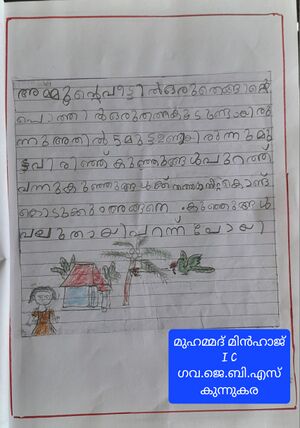 അമ്മൂന്റെ വീട്ടിൽ ഒരു തെങ്ങിന്റെ
പൊത്തിൽ ഒരു തത്തകൂടുണ്ടായിരു
ന്നു അതിൽ 5 മുട്ട ഉണ്ടായിരുന്നു മു
ട്ട വിരിഞ്ഞ് കുഞ്ഞുങ്ങൾ പുറത്ത്
വന്നു കുഞ്ഞുങ്ങൾക്ക് കൊണ്ട്
കൊടുക്കും അങ്ങനെ കുഞ്ഞുങ്ങൾ
വലുതായി പറന്ന് പോയി
മുഹമ്മദ് മിൻഹാജ്
I C
ഗവ.ജെ.ബി.എസ്
കുന്നുകര